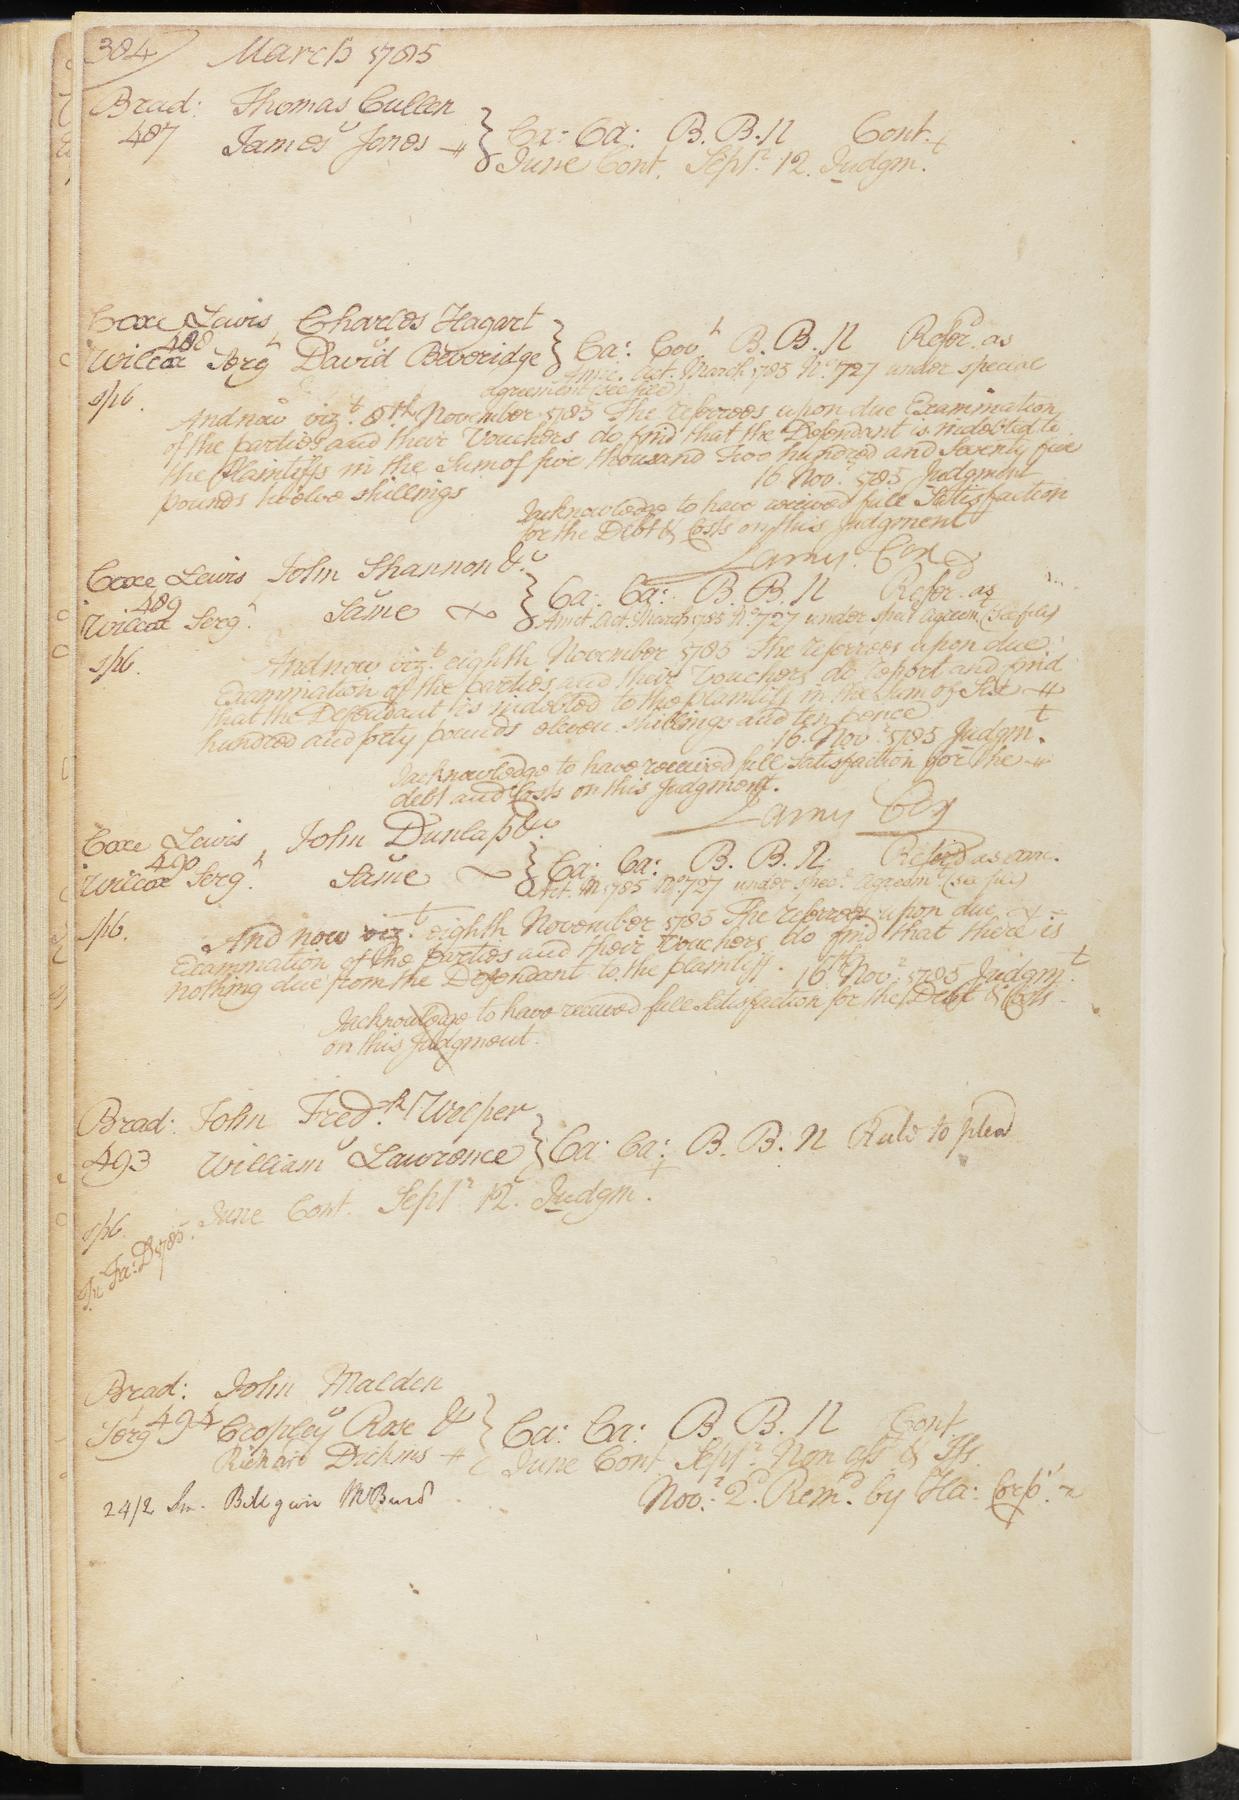 384 March 1785
Brad: Thomas Cullen
487 v James Jones } Ca: Ca: B. B. N Cont.
June Cont. Sept.r 12. Judgm.t
Coxe Lewis Charles Hagart
488
Wilcox Serg.t v David Beveridge } Ca: Cov.t B. B. N Refer.d as
Amic. Act. March 1785 N.o 727 under special
agreement (see file)
1/16.
And now viz.t 8th November 1785 The referrees upon due Examination
of the parties and their Vouchers do find that the Defendant is indebted to
the Plaintiffs in the Sum of five thousand Two hundred and Seventy five
pounds twelve shillings 16 Nov.r 1785 Judgment
I acknowledge to have received full Satisfaction
for the Debt & Costs on this Judgment
Ja.s Cox
Coxe Lewis John Shannon &c
489
Wilcox Serg.t v Same } Ca: Ca: B. B. N Refer.d as
Amic.t Act. March 1785 N.o 727 under spec.l agreem.t (See file)
1/16.
And now viz.t eighth November 1785 The referrees upon due
Examination of the parties and their Vouchers do report and find
that the Defendant is indebted to the plaintiff in the Sum of Six
hundred and forty pounds eleven shillings and ten pence
16. Nov.r 1785 Judgm.t
I acknowledge to have received full Satisfaction for the
debt and Costs on this Judgment.
Ja.s Cox
Coxe Lewis John Dunlap &c
490
Wilcox Serg.t v Same } Ca: Ca: B. B. N. Refer.d as am.
Act. M 1785 N.o 727 under spec.l agreem.t (see file)
1/16.
And now viz.t eighth November 1785 The referrees upon due
Examination of the parties and their Vouchers do find that there is
nothing due from the Defendant to the plaintiff. 16th Nov.r 1785 Judgm.t
I acknowledge to have received full Satisfaction for the Debt & Costs
on this Judgment.
Brad: John Fred.k Welper
493 v William Lawrence } Ca: Ca: B. B. N Rule to plead
June Cont. Sept.r 12. Judgm.t
1/16
Fi: Fa: D 1785.
Brad: John Malden
Serg.t 494 v Cropley Rose &
Richard Dickins } Ca: Ca: B. B. N Cont
June Cont Sept.r Non ass. & Iss.
24/2 Nov.r 2.d Rem.d by Ha: Corp.s